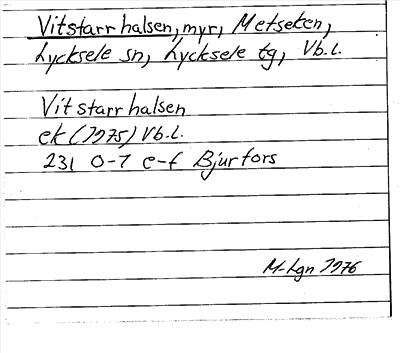 Vitstarrhalsen, myr, Metseken,
Lycksele sn, Lycksele tg, Vb.l.
Vitstarrhalsen
ek (1975) Vb.l.
231 0-7 e-f Bjurfors
M-Lgn 1976